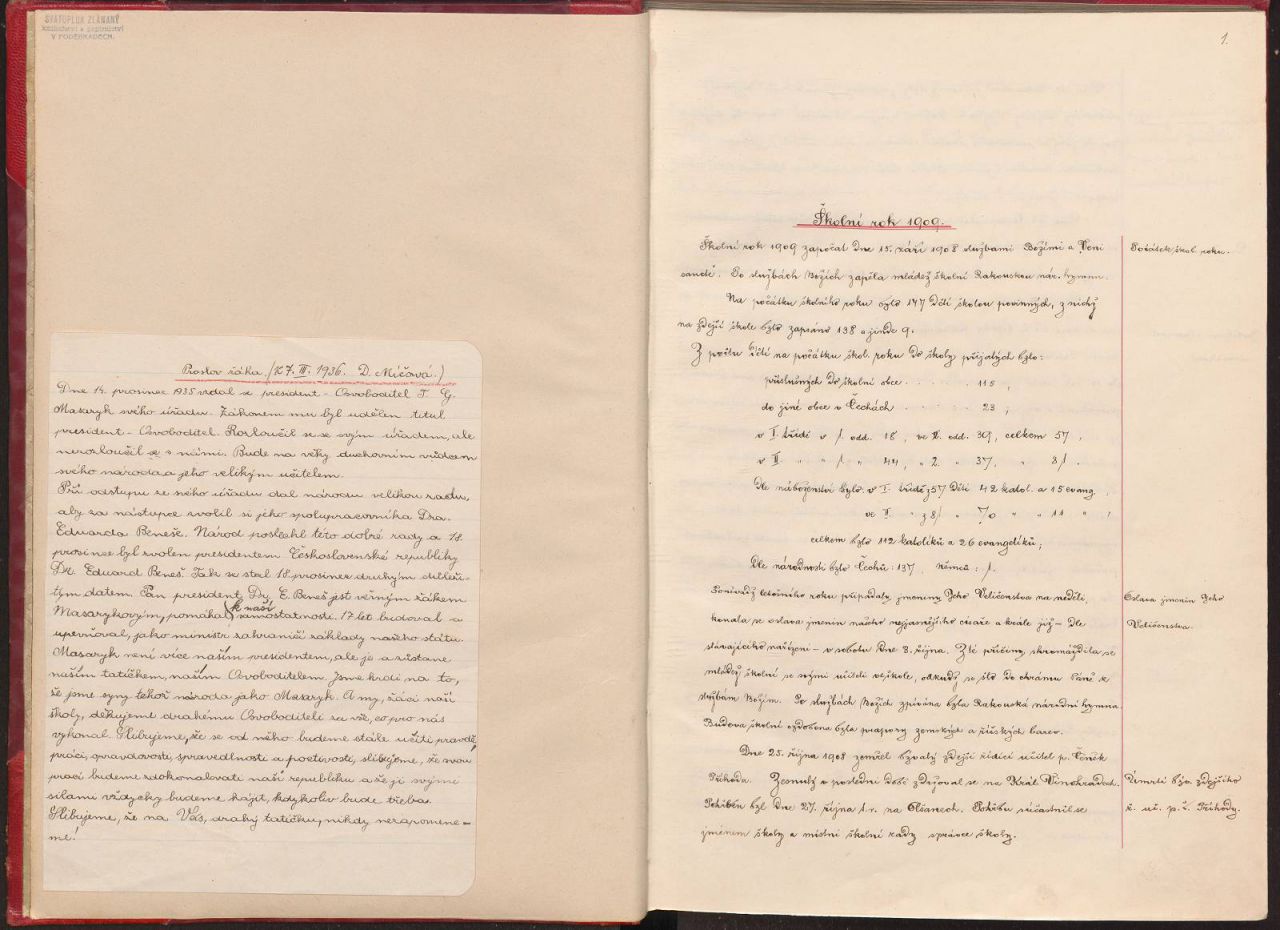 SVATOPLUK ZLÁMANÝ
knihařství a papírnictví
V PODĚBRADECH.
Proslov žáka (k 7. III. 1936. D. Míčová.)
Dne 14. prosince 1935 vzdal se president-Osvoboditel T. G.
Masaryk svého úřadu. Zákonem mu byl udělen titul
president-Osvoboditel. Rozloučil se se svým úřadem, ale
nerozloučil se s námi. Bude na věky duchovním vůdcem
svého národa a jeho velikým učitelem.
Při odstupu se svého úřadu dal národu velikou radu,
aby za nástupce zvolil si jeho spolupracovníka Dra.
Eduarda Beneše. Národ poslechl této dobré rady a 18.
prosince byl zvolen presidentem Československé republiky
Dr. Eduard Beneš. Tak se stal 18 prosinec druhým důleži-
tým datem. Pan president Dr. E. Beneš jest věrným žákem
Masarykovým, pomáhal k naší samostatnosti. 17 let budoval a
upevňoval, jako ministr zahraničí základy našeho státu.
Masaryk není více naším presidentem, ale je a zůstane
naším tatíčkem, naším Osvoboditelem. Jsme hrdi na to,
že jsme syny téhož národa jako Masaryk. A my, žáci naší
školy, děkujeme drahému Osvoboditeli za vše, co pro nás
vykonal. Slibujeme, že se od něho budeme stále učiti pravdě,
práci, opravdovosti, spravedlnosti a poctivosti, slibujeme, že svou
prací budeme zdokonalovati naši republiku a že ji svými
silami vždycky budeme hájit, kdykoliv bude třeba.
Slibujeme, že na Vás, drahý tatíčku, nikdy nezapomene-
me!
1.
Školní rok 1909.
Školní rok 1909 započat dne 15. září 1908 službami Božími a "Veni
sancte". Po službách Božích zapěla mládež školní Rakouskou nár. hymnu.
Počátek škol. roku.
Na počátku školního roku bylo 147 dětí školou povinných, z nichž
na zdejší škole bylo zapsáno 138 a jinde 9.
Z počtu dětí na počátku škol. roku do školy přijatých bylo:
příslušných do školní obce . . . . . 115,
do jiné obce v Čechách . . . . . 23,
v I. třídě v 1. odd. 18, ve II. odd. 39, celkem 57,
v II. " " 1. " 44, " 2. " 37, " 81.
Dle náboženství bylo v I. třídě z 57 dětí 42 katol. a 15 evang.,
ve II. " z 81 " 70 " " 11 " ,
celkem bylo 112 katolíků a 26 evangelíků;
Dle národnosti bylo Čechů: 137, Němců: 1.
Poněvadž letošního roku připadaly jmeniny Jeho Veličenstva na neděli,
Oslava jmenin Jeho
konala se oslava jmenin našeho nejjasnějšího císaře a krále již – dle
Veličenstva.
stávajícího nařízení – v sobotu dne 3. října. Z té příčiny shromáždila se
mládež školní se svými učiteli ve škole, odkudž se šlo do chrámu Páně k
službám Božím. Po službách Božích zpívána byla Rakouská národní hymna.
Budova školní ozdobena byla prapory zemských a říšských barev.
Dne 25. října 1908 zemřel bývalý zdejší řídící učitel p. Čeněk
Příhoda. Zesnulý v poslední době zdržoval se na Král. Vinohradech.
Úmrtí býv. zdejšího
Pohřben byl dne 27. října t. r. na Olšanech. Pohřbu súčastnil se
ř. uč. p. Č. Příhody.
jménem školy a místní školní rady správce školy.